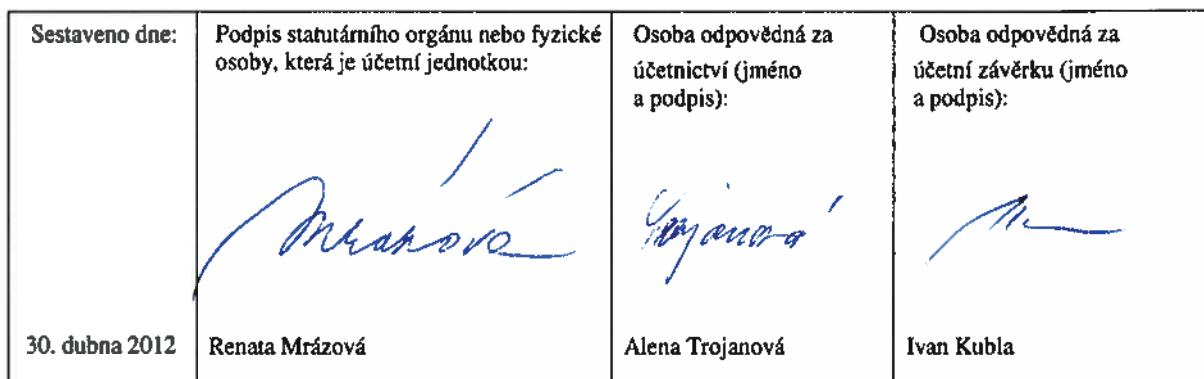 Sestaveno dne:
Podpis statutárního orgánu nebo fyzické
osoby, která je účetní jednotkou:
Osoba odpovědná za
účetnictví (jméno
a podpis):
Osoba odpovědná za
účetní závěrku (jméno
a podpis):
Mrázová
Trojanová
30. dubna 2012
Renata Mrázová
Alena Trojanová
Ivan Kubla